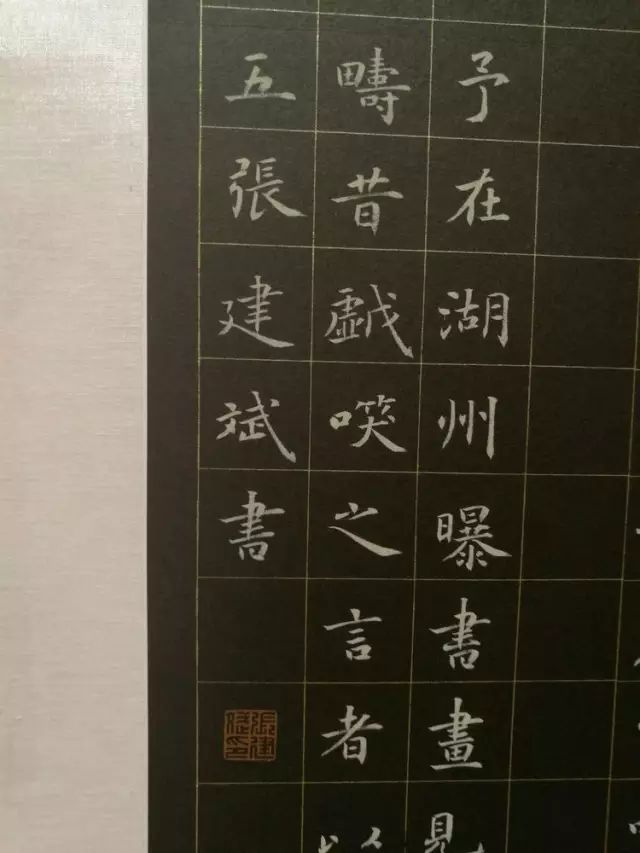 予在湖州曝書畫見
疇昔戯㗛之言者
五張建斌書
張建斌印